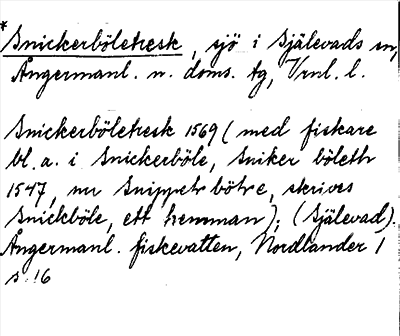 *Snickerböletresk, sjö i Själevads sn,
Ångermanl. n. doms. tg, Vrnl. l.
Snickerböletresk 1569 (med fiskare
bl. a. i Snickerböle, Sniker böleth
1547, nu Snippetr bötre, skrives
Snickböle, ett hemman); (Själevad).
Ångermanl. fiskevatten, Nordlander 1
s. 16